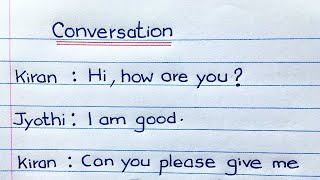 Conversation
Kiran : Hi, how are you?
Jyothi : I am good.
Kiran : Can you please give me